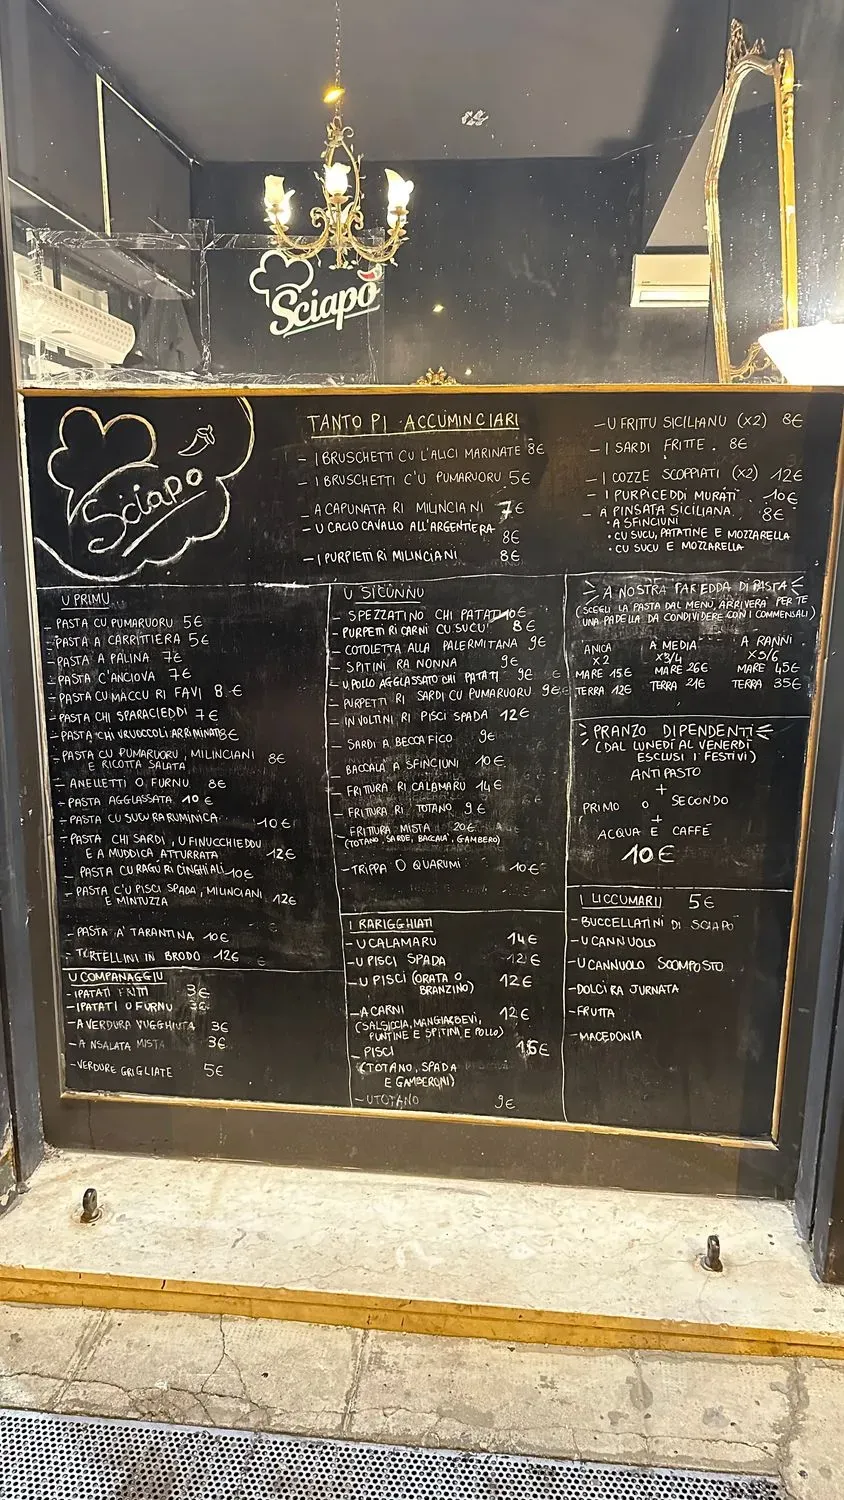 Sciapò
Sciapo
TANTO PI ACCUMINCIARI
- I BRUSCHETTI CU L'ALICI MARINATE 8€
- I BRUSCHETTI C'U PUMARUORU 5€
- A CAPUNATA RI MILINCIANI 7€
- U CACIO CAVALLO ALL'ARGENTIERA 8€
- I PURPIETTI RI MILINCIANI 8€
- U FRITTU SICILIANU (X2) 8€
- I SARDI FRITTE. 8€
- I COZZE SCOPPIATI (X2) 12€
- I PURPICEDDI MURATI 10€
- A PINSATA SICILIANA 8€
• A SFINCIUNI
• CU SUCU, PATATINE E MOZZARELLA
• CU SUCU E MOZZARELLA
U PRIMU
- PASTA CU PUMARUORU 5€
- PASTA A CARRITTIERA 5€
- PASTA A PALINA 7€
- PASTA C'ANCIOVA 7€
- PASTA CU MACCU RI FAVI 8€
- PASTA CHI SPARACIEDDI 7€
- PASTA CHI VRUOCCOLI ARRIMINATI 8€
- PASTA CU PUMARUORU, MILINCIANI
E RICOTTA SALATA 8€
- ANELLETTI O FURNU 8€
- PASTA AGGLASSATA 10€
- PASTA CU SUCU RA RUMINICA 10€
- PASTA CHI SARDI, U FINUCCHIEDDU
E A MUDDICA ATTURRATA 12€
PASTA CU RAGU RI CINGHIALI 10€
- PASTA C'U PISCI SPADA, MILINCIANI
E MINTUZZA 12€
- PASTA A' TARANTINA 10€
- TORTELLINI IN BRODO 12€
U COMPANAGGIU
- I PATATI FRITTI 3€
- I PATATI O FURNU 3€
- A VERDURA VUGGHIUTA 3€
- A NSALATA MISTA 3€
- VERDURE GRIGLIATE 5€
U SICUNNU
- SPEZZATINO CHI PATATI 10€
- PURPETTI RI CARNI CU SUCU 8€
- COTOLETTA ALLA PALERMITANA 9€
- SPITINI RA NONNA 9€
- U POLLO AGGLASSATO CHI PATATI 9€
- PURPETTI RI SARDI CU PUMARUORU 9€
- INVOLTINI RI PISCI SPADA 12€
- SARDI A BECCAFICO 9€
- BACCALÀ A SFINCIUNI 10€
- FRITTURA RI CALAMARU 14€
- FRITTURA RI TOTANO 9€
- FRITTURA MISTA 20€
(TOTANO, SARDE, BACCALÀ, GAMBERO)
- TRIPPA O QUARUMI 10€
I RARIGGHIATI
- U CALAMARU 14€
- U PISCI SPADA 12€
- U PISCI (ORATA O
BRANZINO) 12€
- A CARNI 12€
(SALSICCIA, MANGIA E BEVI,
PUNTINE E SPITINI E POLLO)
- PISCI 15€
(TOTANO, SPADA
E GAMBERONI)
- U TOTANO 9€
A NOSTRA PAREDDA DI PASTA
(SCEGLI LA PASTA DAL MENÙ, ARRIVERÀ PER TE
UNA PADELLA DA CONDIVIDERE CON I COMMENSALI)
ANICA A MEDIA A RANNI
X2 X3/4 X5/6
MARE 15€ MARE 26€ MARE 45€
TERRA 12€ TERRA 21€ TERRA 35€
PRANZO DIPENDENTI
(DAL LUNEDÌ AL VENERDÌ
ESCLUSI I FESTIVI)
ANTIPASTO
+
PRIMO O SECONDO
+
ACQUA E CAFFÈ
10€
I LICCUMARII 5€
- BUCCELLATINI DI SCIAPÒ
- U CANNUOLO
- U CANNUOLO SCOMPOSTO
- DOLCI RA JURNATA
- FRUTTA
- MACEDONIA